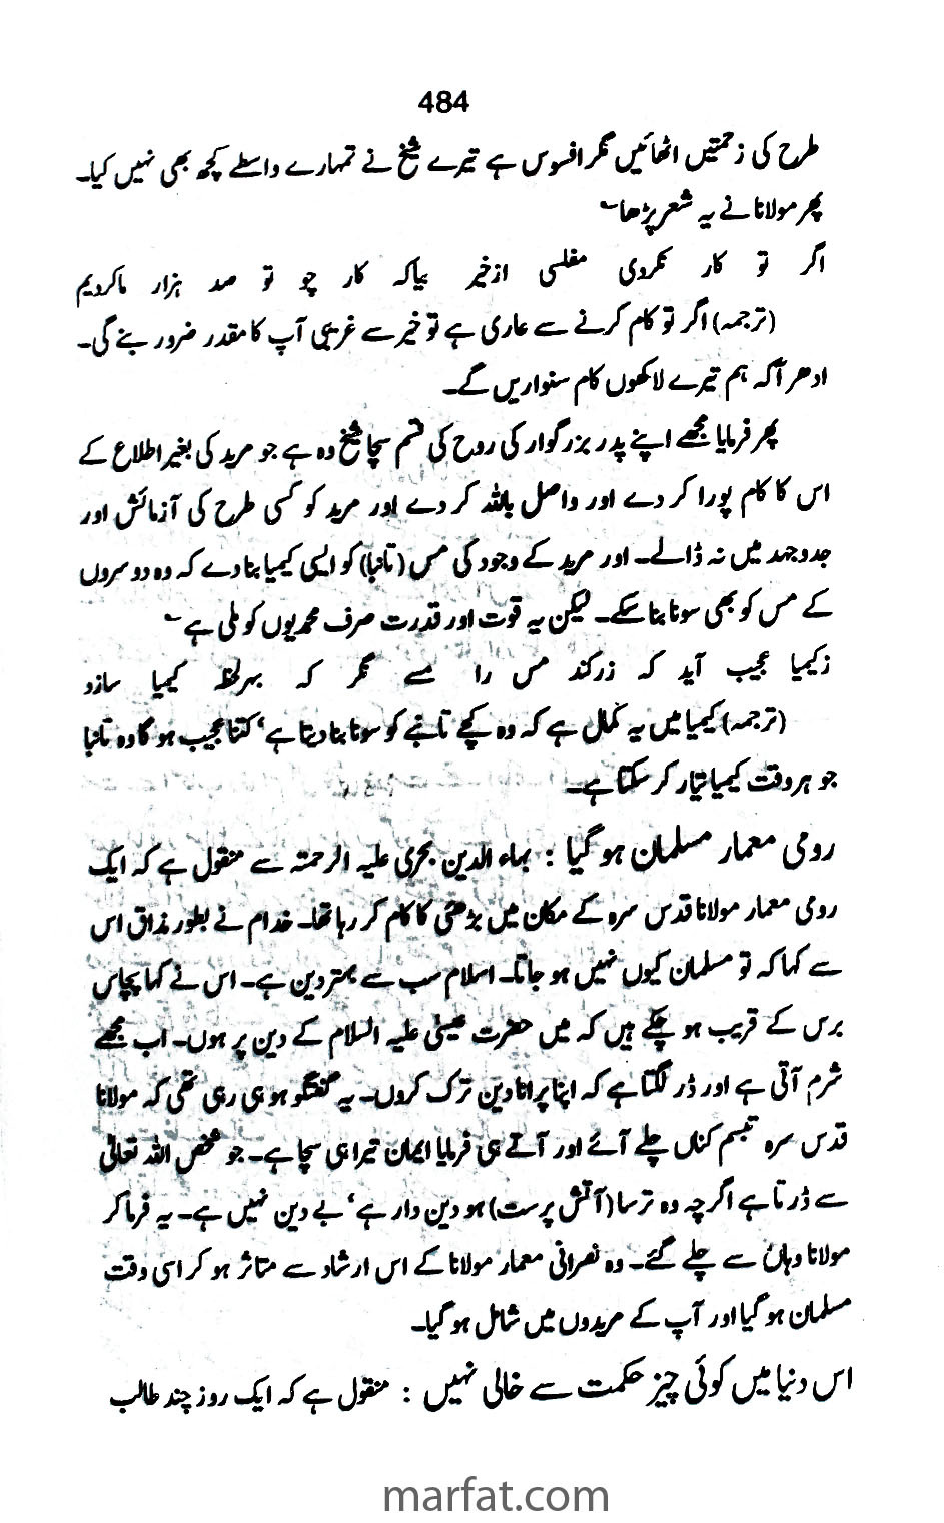 484
طرح کی زحمتیں اٹھائیں مگر افسوس ہے تیرے شیخ نے تمہارے واسطے کچھ بھی نہیں کیا۔
پھر مولانا نے یہ شعر پڑھا ؎
اگر تو کار نکردی مفلسی ازخیر بیاکہ کار چو تو صد ہزار ماکردیم
(ترجمہ) اگر تو کام کرنے سے عاری ہے تو خیر سے غریبی آپ کا مقدر ضرور بنے گی۔
ادھر آکہ ہم تیرے لاکھوں کام سنواریں گے۔
پھر فرمایا مجھے اپنے پدر بزرگوار کی روح کی قسم سچا شیخ وہ ہے جو مرید کی بغیر اطلاع کے
اس کا کام پورا کر دے اور واصل باللہ کر دے اور مرید کو کسی طرح کی آزمائش اور
جدوجہد میں نہ ڈالے۔ اور مرید کے وجود کی مس (تانبا) کو ایسی کیمیا بنا دے کہ وہ دوسروں
کے مس کو بھی سونا بنا سکے۔ لیکن یہ قوت اور قدرت صرف محمدیوں کو ملی ہے ؎
زکیمیا عجیب آید کہ زرکند مس را مسے نگر کہ بہرلحظہ کیمیا سازد
(ترجمہ) کیمیا میں یہ کمال ہے کہ وہ کچے تانبے کو سونا بنا دیتا ہے‘ کتنا عجیب ہو گا وہ تانبا
جو ہر وقت کیمیا تیار کر سکتا ہے۔
رومی معمار مسلمان ہو گیا : بہاء الدین بحری علیہ الرحمتہ سے منقول ہے کہ ایک
رومی معمار مولانا قدس سرہ کے مکان میں بڑھئی کا کام کر رہا تھا۔ خدام نے بطور مذاق اس
سے کہا کہ تو مسلمان کیوں نہیں ہو جاتا۔ اسلام سب سے بہتر دین ہے۔ اس نے کہا پچاس
برس کے قریب ہو چکے ہیں کہ میں حضرت عیسیٰ علیہ السلام کے دین پر ہوں۔ اب مجھے
شرم آتی ہے اور ڈر لگتا ہے کہ اپنا پرانا دین ترک کروں۔ یہ گفتگو ہو ہی رہی تھی کہ مولانا
قدس سرہ تبسم کناں چلے آئے اور آتے ہی فرمایا ایمان تیرا ہی سچا ہے۔ جو شخص اللہ تعالیٰ
سے ڈرتا ہے اگرچہ وہ ترسا (آتش پرست) ہو دین دار ہے‘ بے دین نہیں ہے۔ یہ فرما کر
مولانا وہاں سے چلے گئے۔ وہ نصرانی معمار مولانا کے اس ارشاد سے متاثر ہو کر اسی وقت
مسلمان ہو گیا اور آپ کے مریدوں میں شامل ہو گیا۔
اس دنیا میں کوئی چیز حکمت سے خالی نہیں : منقول ہے کہ ایک روز چند طالب
marfat.com